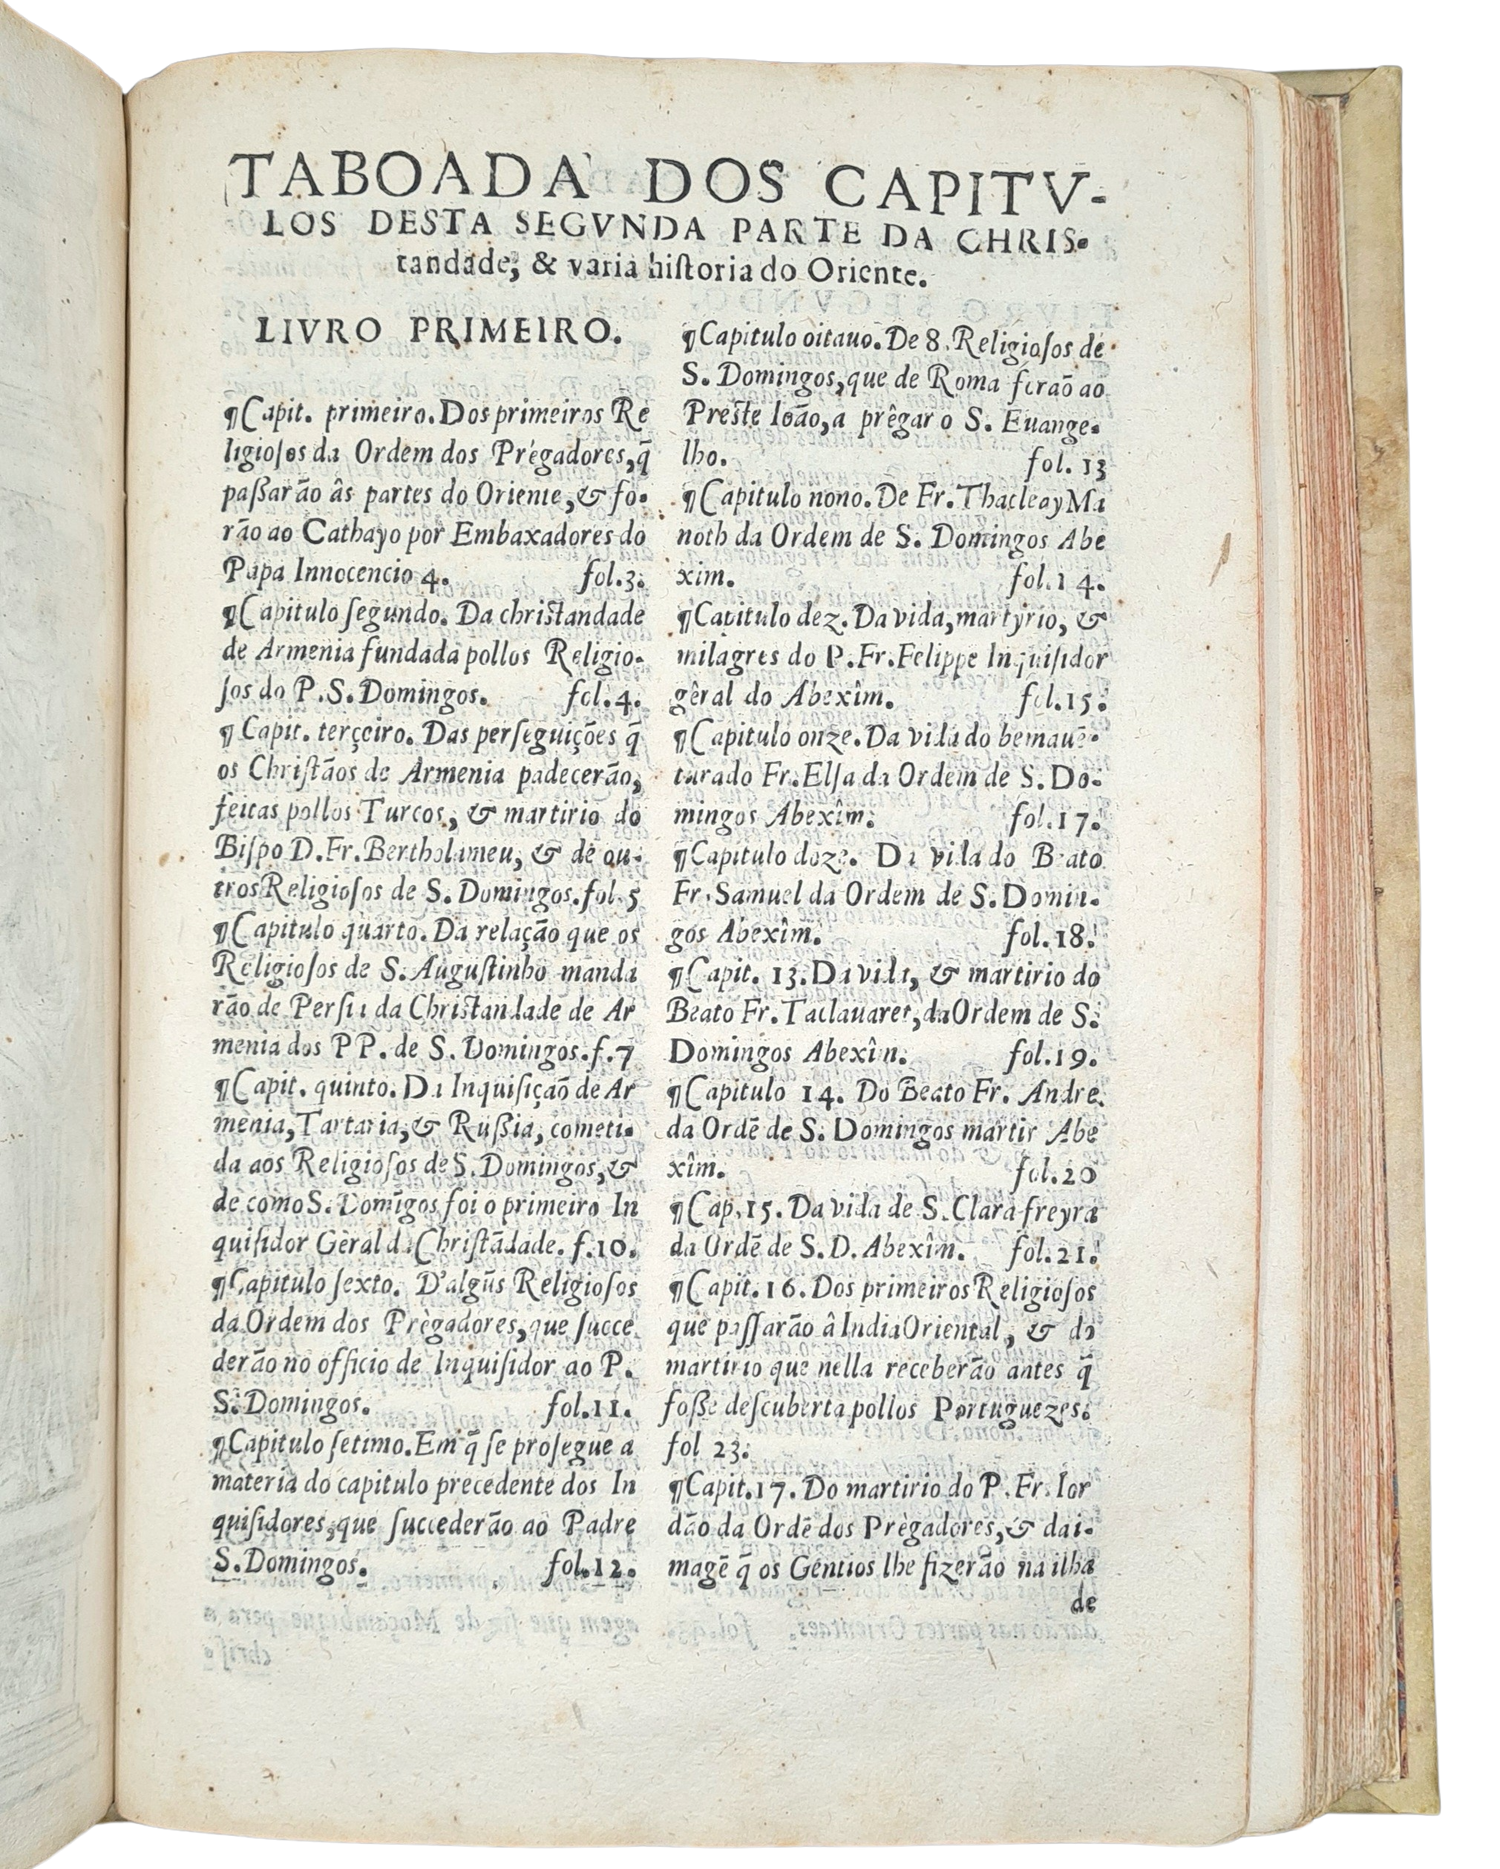 TABOADA DOS CAPITV-
LOS DESTA SEGVNDA PARTE DA CHRIS-
tandade, & varia hiſtoria do Oriente.
LIVRO PRIMEIRO.
¶Capit. primeiro. Dos primeiros Re
ligioſos da Ordem dos Prégadores, q̃
paßarão âs partes do Oriente, & fo-
rão ao Cathayo por Embaxadores do
Papa Innocencio 4. fol.3.
¶Capitulo ſegundo. Da chriſtandade
de Armenia fundada pollos Religio-
ſos do P.S. Domingos. fol.4.
¶Capit. terçeiro. Das perſeguições q̃
os Chriſtãos de Armenia padecerão,
feitas pollos Turcos, & martirio do
Biſpo D.Fr.Bertholameu, & de ou-
tros Religioſos de S. Domingos. fol.5
¶Capitulo quarto. Da relação que os
Religioſos de S. Auguſtinho manda
rão de Perſia da Chriſtandade de Ar
menia dos PP. de S. Domingos.f.7
¶Capit. quinto. Da Inquiſição de Ar
menia, Tartaria, & Rußia, cometi-
da aos Religioſos de S. Domingos, &
de como S. Domĩgos foi o primeiro In
quiſidor Geral da Chriſtãdade. f.10.
¶Capitulo ſexto. D'algũs Religioſos
da Ordem dos Prègadores, que ſucce
derão no officio de Inquiſidor ao P.
S. Domingos. fol.11.
¶Capitulo ſetimo. Em q̃ ſe proſegue a
materia do capitulo precedente dos In
quiſidores, que ſuccederão ao Padre
S. Domingos. fol.12.
¶Capitulo oitauo. De 8. Religioſos de
S. Domingos, que de Roma forão ao
Preſte Ioão, a prêgar o S. Euange-
lho. fol. 13
¶Capitulo nono. De Fr. Thacleay Ma
noth da Ordem de S. Domingos Abe
xim. fol.14.
¶Capitulo dez. Da vida, martyrio, &
milagres do P. Fr. Felippe Inquiſidor
gêral do Abexîm. fol.15.
¶Capitulo onze. Da vida do bemauẽ-
turado Fr. Elſa da Ordem de S. Do-
mingos Abexîm. fol.17.
¶Capitulo doze. Da vida do Beato
Fr. Samuel da Ordem de S. Domin-
gos Abexîm. fol.18.
¶Capit. 13. Da vida, & martirio do
Beato Fr. Taclauaret, da Ordem de S.
Domingos Abexîm. fol.19.
¶Capitulo 14. Do Beato Fr. Andre
da Ordẽ de S. Domingos martir Abe
xîm. fol.20
¶Cap.15. Da vida de S. Clara freyra
da Ordẽ de S. D. Abexîm. fol.21.
¶Capit.16. Dos primeiros Religioſos
que paſſarão â India Oriental, & do
martirio que nella receberão antes q̃
foße deſcuberta pollos Portuguezes.
fol 23.
¶Capit.17. Do martirio do P. Fr. Ior
dão da Ordẽ dos Prègadores, & da i-
magẽ q̃ os Gentios lhe fizerão na ilha
de